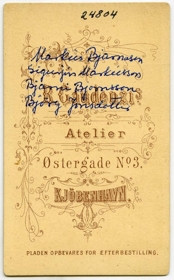 24804
Markús Bjarnason
Sigurjón Markússon
Bjarni Björnsson
Björg Jónsdóttir
Atelier
Østergade No3.
KJÖBENHAVN.
PLADEN OPBEVARES FOR EFTERBESTILLING.